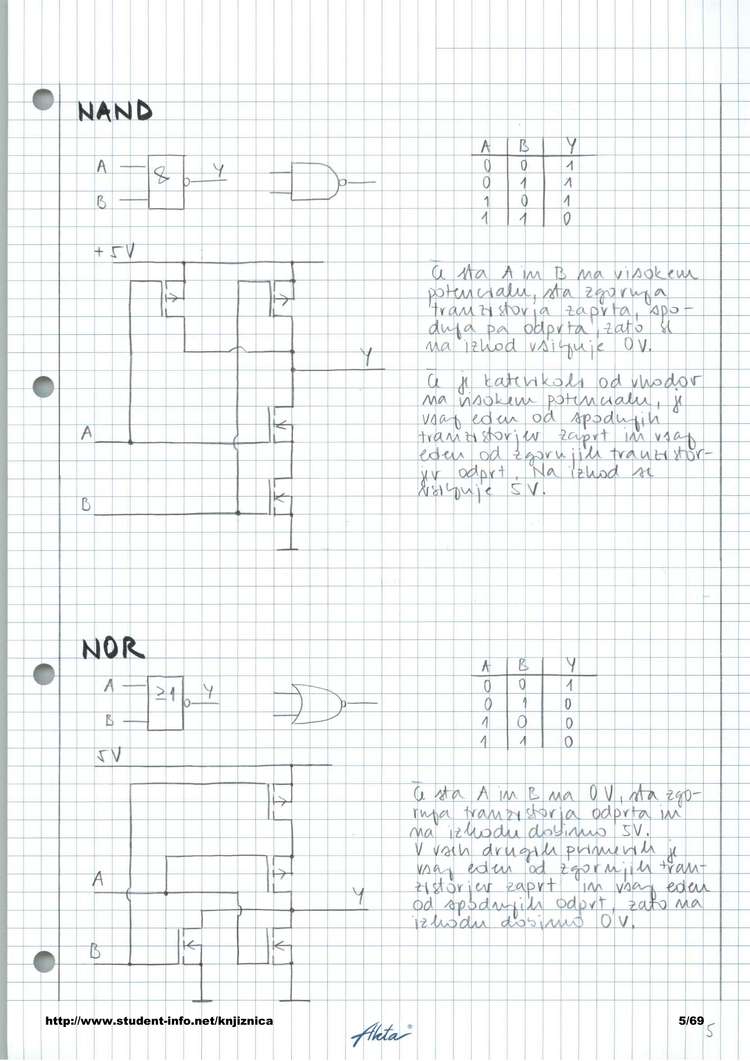 NAND
A & Y
B
A B Y
0 0 1
0 1 1
1 0 1
1 1 0
+5V
Y
A
B
Če sta A in B na visokem
potencialu, sta zgornja
tranzistorja zaprta, spo-
dnja pa odprta, zato se
na izhod vsiljuje 0V.
Če je katerikoli od vhodov
na visokem potencialu, je
vsaj eden od spodnjih
tranzistorjev zaprt in vsaj
eden od zgornjih tranzistor-
jev odprt. Na izhod se
vsiljuje 5V.
NOR
A ≥1 Y
B
A B Y
0 0 1
0 1 0
1 0 0
1 1 0
5V
A
Y
B
Če sta A in B na 0V, sta zgo-
rnja tranzistorja odprta in
na izhodu dobimo 5V.
V vseh drugih primerih je
vsaj eden od zgornjih tran-
zistorjev zaprt in vsaj eden
od spodnjih odprt, zato na
izhodu dobimo 0V.
http://www.student-info.net/knjiznica
Aketa
5/69
5